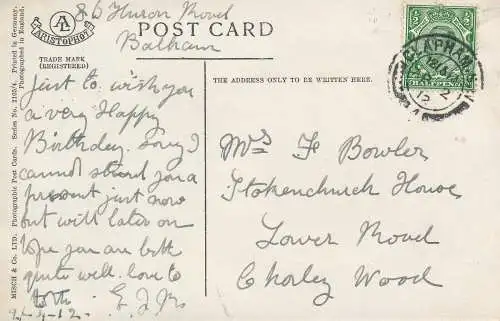 8D Huron Road
Balham
POST CARD
AL
ARISTOPHOT
TRADE MARK
(REGISTERED)
THE ADDRESS ONLY TO BE WRITTEN HERE.
MISCH & Co. LTD. Photographic Post Cards. Series No. 2103/4. Printed in Germany.
Photographed in England.
Just to wish you
a very Happy
Birthday. sorry I
cannot send you a
present just now
but will later on
hope you are both
quite well. love to
both.
12.
Mrs F Bowler
Stokenchurch House
Lower Road
Chorley Wood
CLAPHAM
12
HALFPENNY